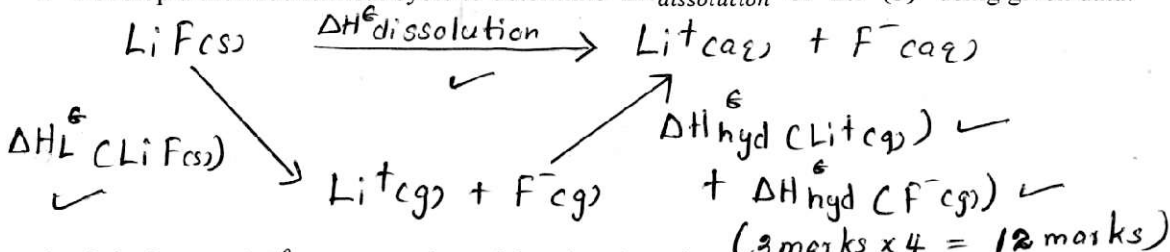 LiF(s) ΔH°dissolution Li+(aq) + F-(aq)
ΔHL° (LiF(s))
ΔH°hyd (Li+(g))
Li+(g) + F-(g) + ΔH°hyd (F-(g))
(3 marks x 4 = 12 marks)